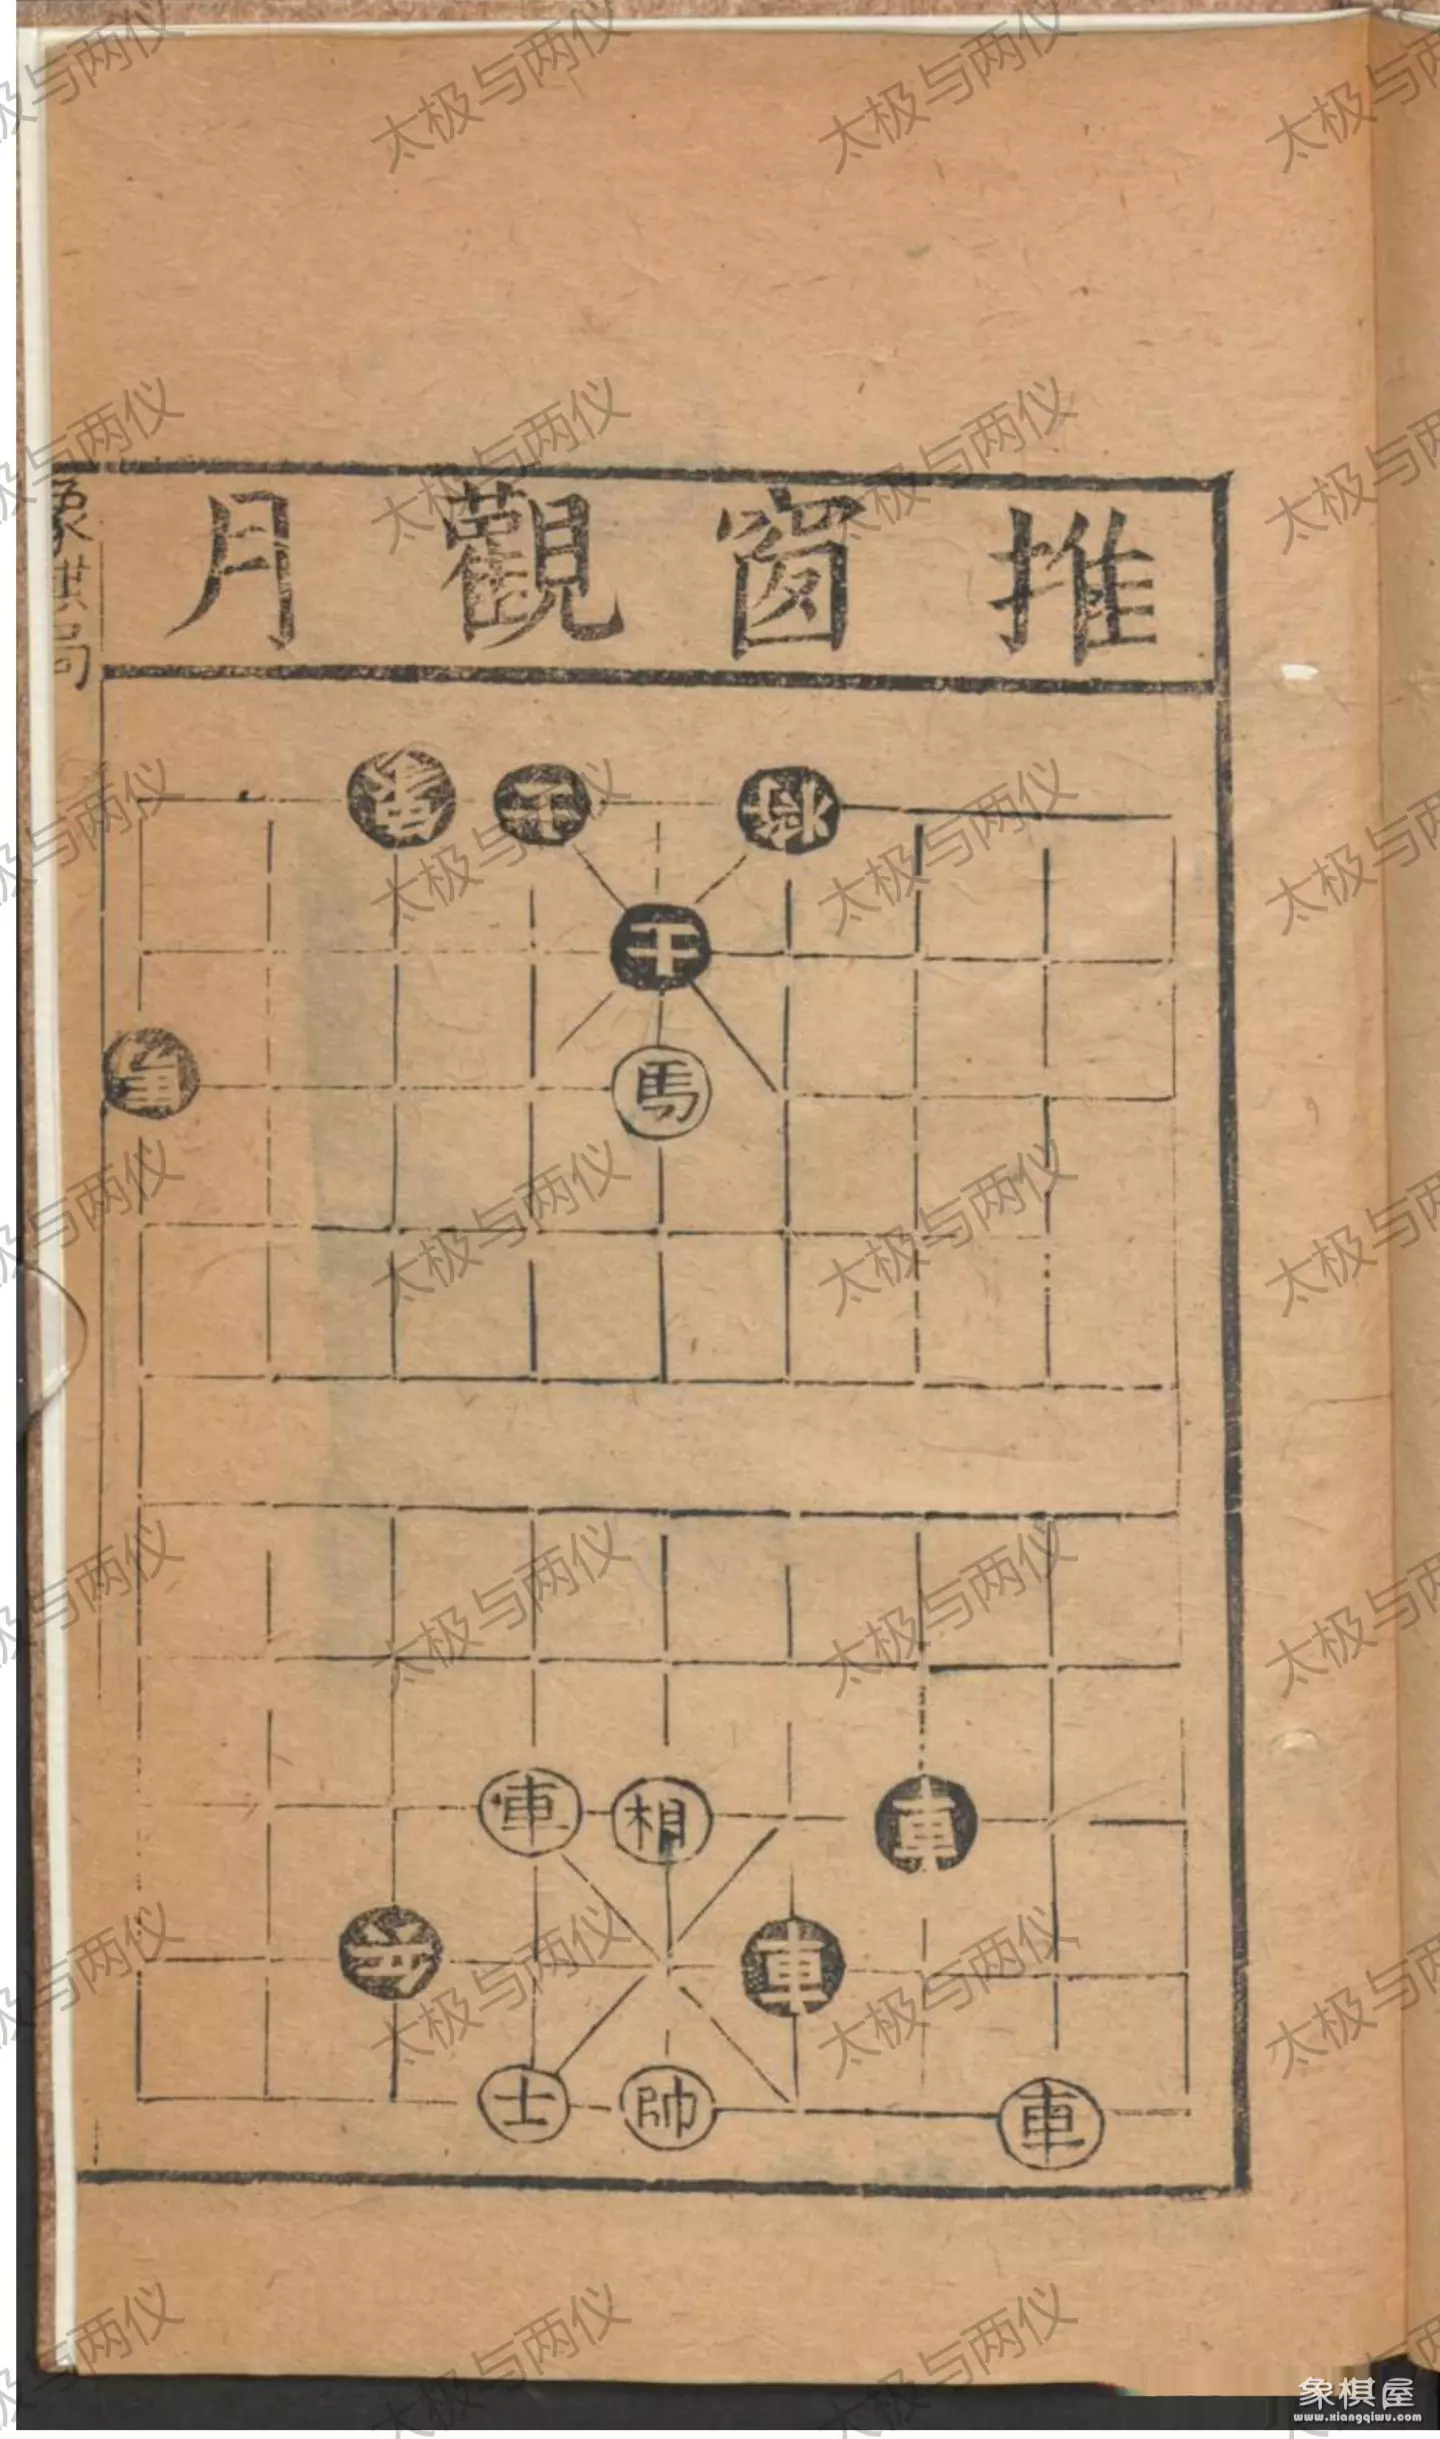 推窗觀月
象棋局
象 士 將
士
車 馬
車 相 車
卒 車
士 帥 車
太极与两仪
象棋屋
www.xiangqiwu.com